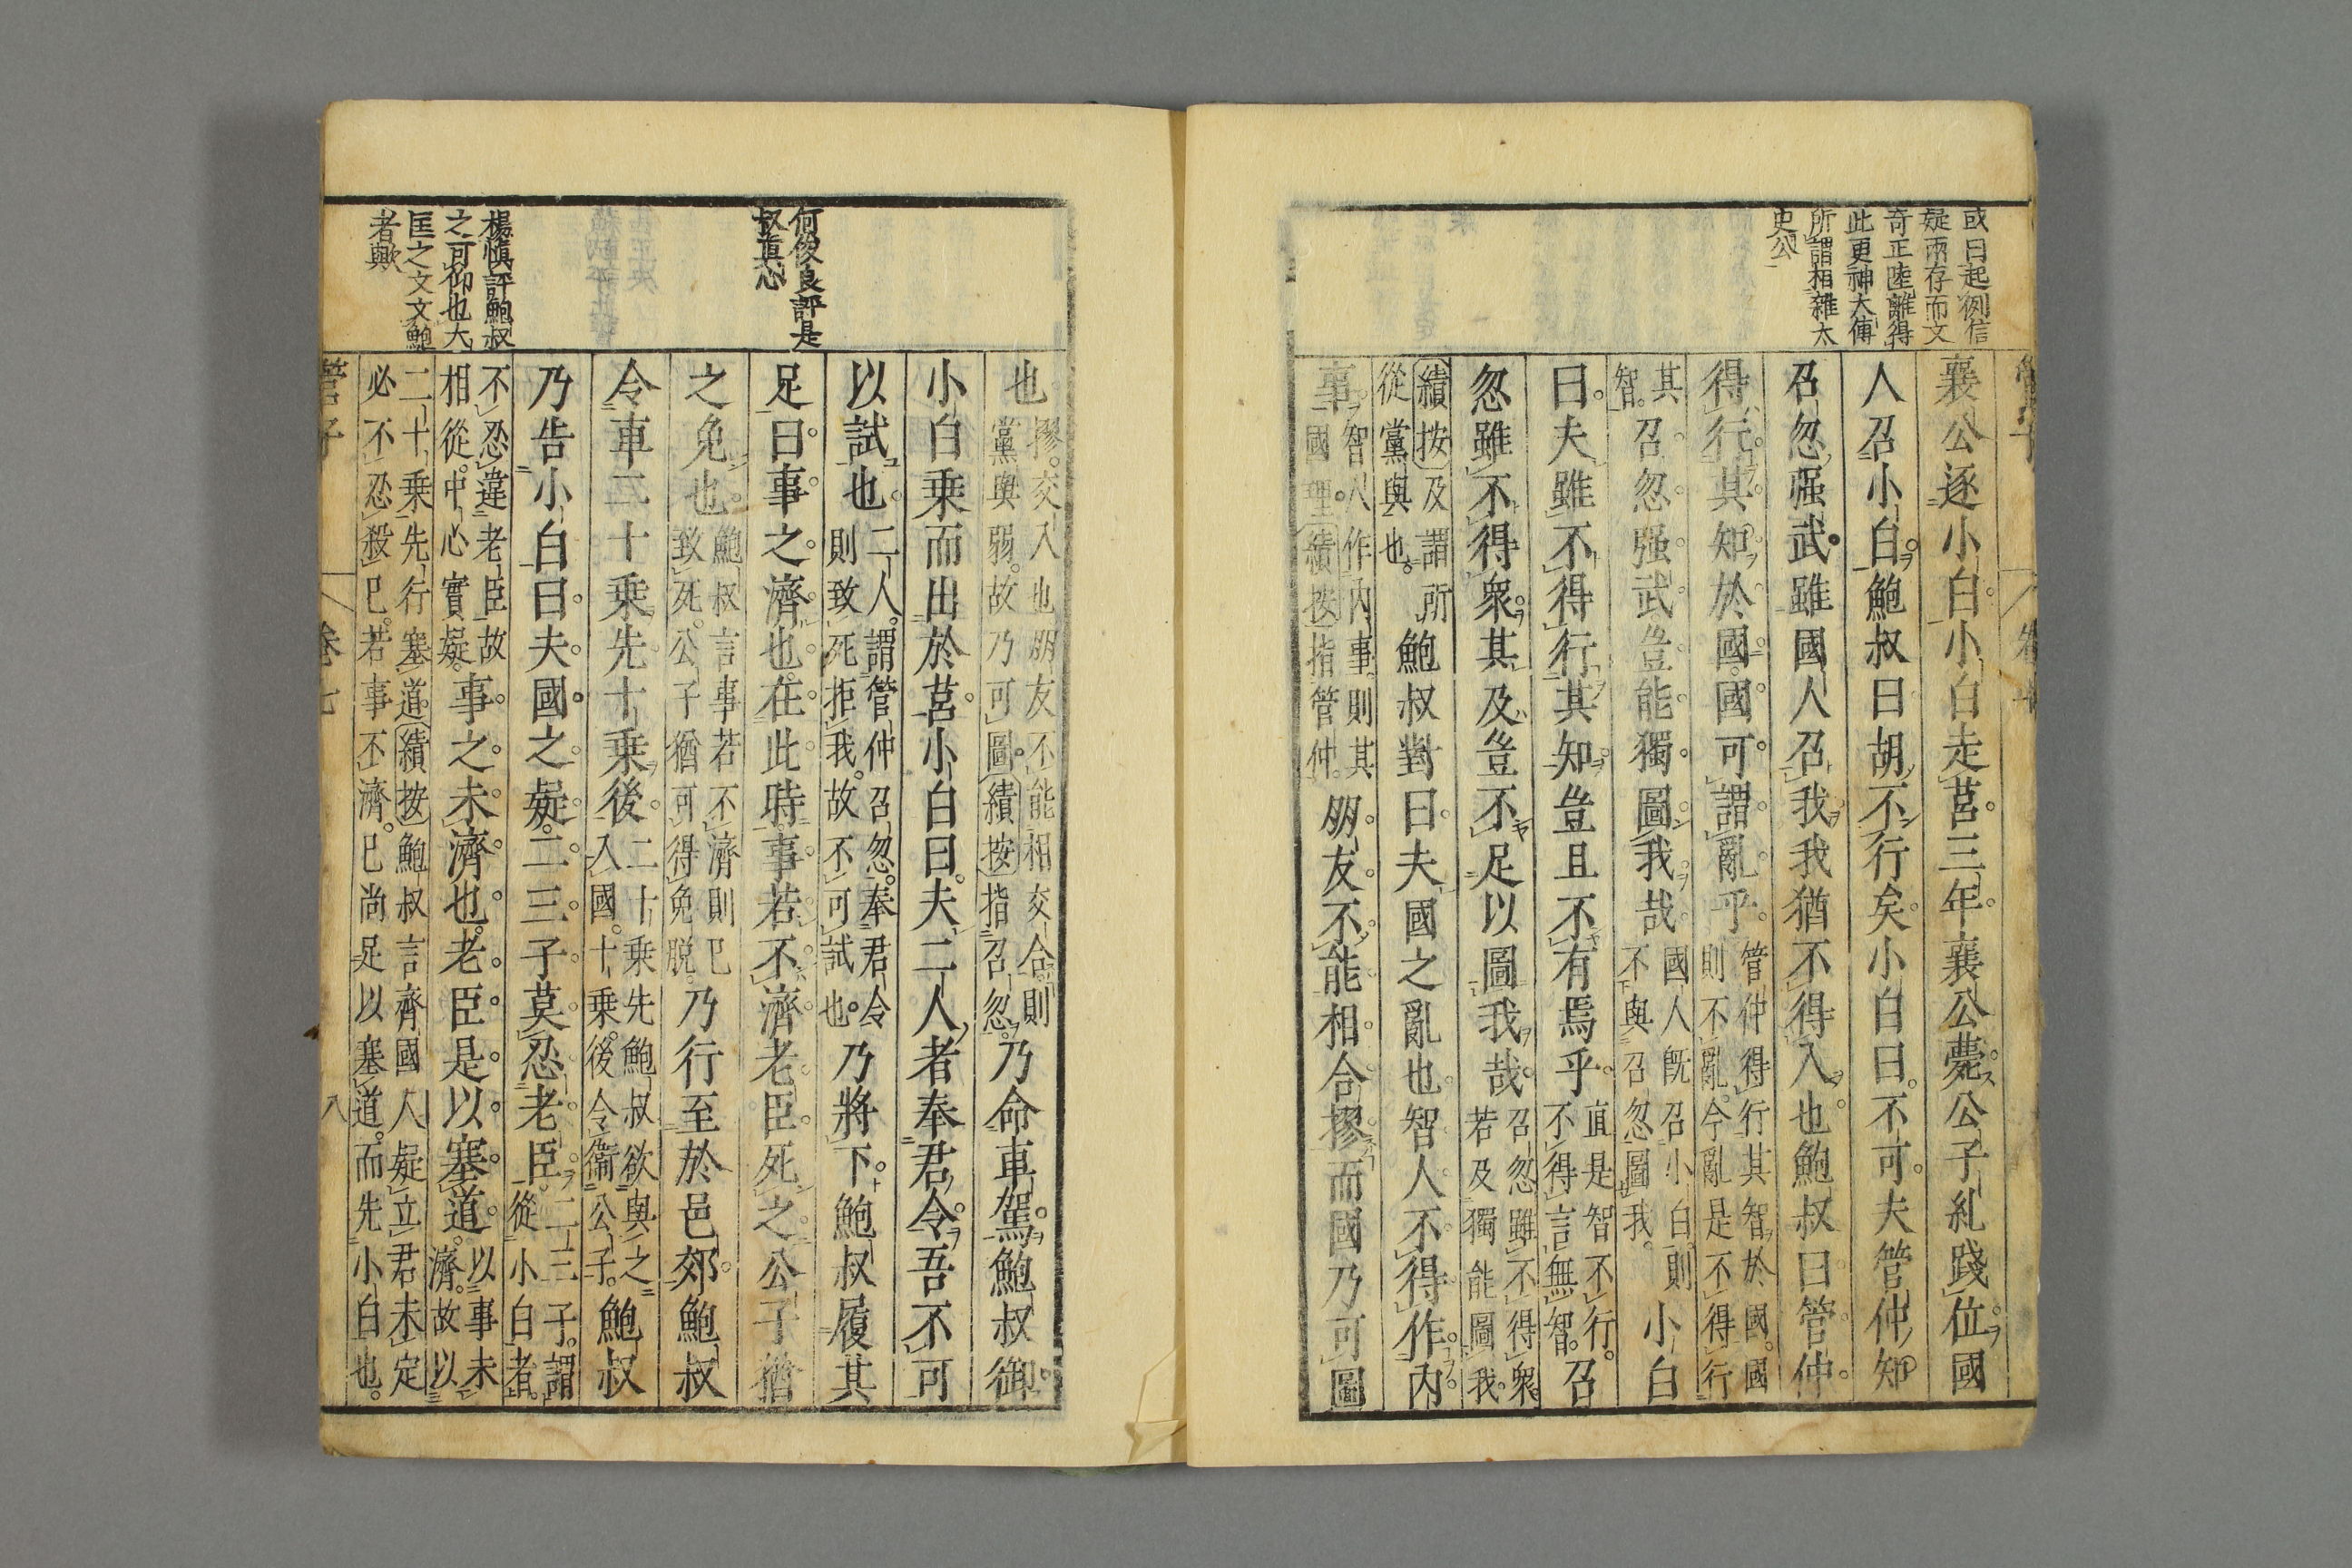 或曰起例信
疑兩存而文
奇正陸離得
此更神大傳
所謂相雜太
史公
襄公逐小白小白走莒三年襄公薨公子糺踐位國
人召小白鮑叔曰胡不行矣小白曰不可夫管仲知
召忽强武雖國人召我我猶不得入也鮑叔曰管仲
得行其知於國國可謂亂乎管仲得行其智於國國則不亂今亂是不得行
其智召忽强武豈能獨圖我哉國人既召小白則不與召忽圖我小白
曰夫雖不得行其知豈且不有焉乎直是智不行不得言無智召
忽雖不得衆其及豈不足以圖我哉召忽雖不得衆若及獨能圖我
續按及謂所從黨與也鮑叔對曰夫國之亂也智人不得作內
事智人作內事則其國理續按指管仲朋友不能相合摎而國乃可圖
何俊良評是
叔真心
楊慎評鮑叔
之可仰也大
匡之文文鮑
者歟
也摎交入也朋友不能相交合則黨與弱故乃可圖續按指召忽乃命車駕鮑叔御
小白乗而出於莒小白曰夫二人者奉君令吾不可
以試也二人謂管仲召忽奉君令則致死拒我故不可試也乃將下鮑叔履其
足曰事之濟也在此時事若不濟老臣死之公子猶
之免也鮑叔言事若不濟則已致死公子猶可得免脱乃行至於邑郊鮑叔
令車二十乗先十乗後二十乗先入國十乗後鮑叔欲與之令衞公子鮑叔
乃告小白曰夫國之疑二三子莫忍老臣二三子謂從小白者
不忍違老臣故相從中心實疑事之未濟也老臣是以塞道以事未濟故以
二十乗先行塞道續按鮑叔言齊國人疑立君未定
必不忍殺已若事不濟已尚足以塞道而先小白也
管子 卷七 八